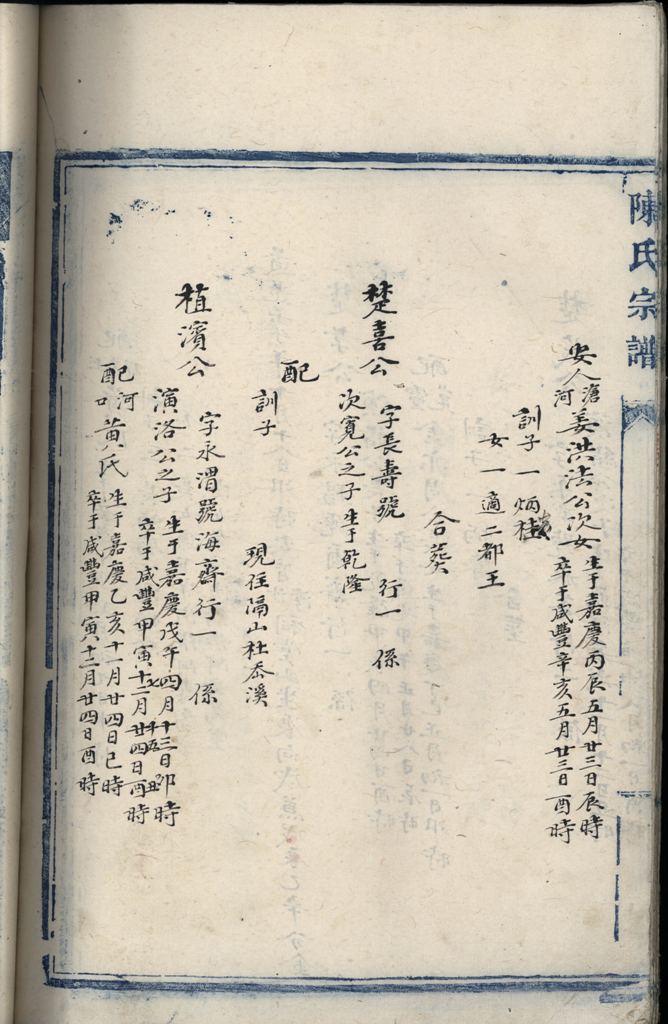 陳氏宗譜
安人滄河姜洪法公次女生于嘉慶丙辰五月廿三日辰時
卒于咸豐辛亥五月廿三日酉時
訓子一炳
女一適二都王
合葬
楚喜公字長壽號 行一 係
次寬公之子生于乾隆
配
訓子 現住湧山社泰溪
植濱公字永渭號海齋行一 係
演洛公之子生于嘉慶戊午四月十三日卯時
卒于咸豐甲寅十二月廿四日酉時
配河口黄氏生于嘉慶乙亥十一月廿四日已時
卒于咸豐甲寅十二月廿四日酉時